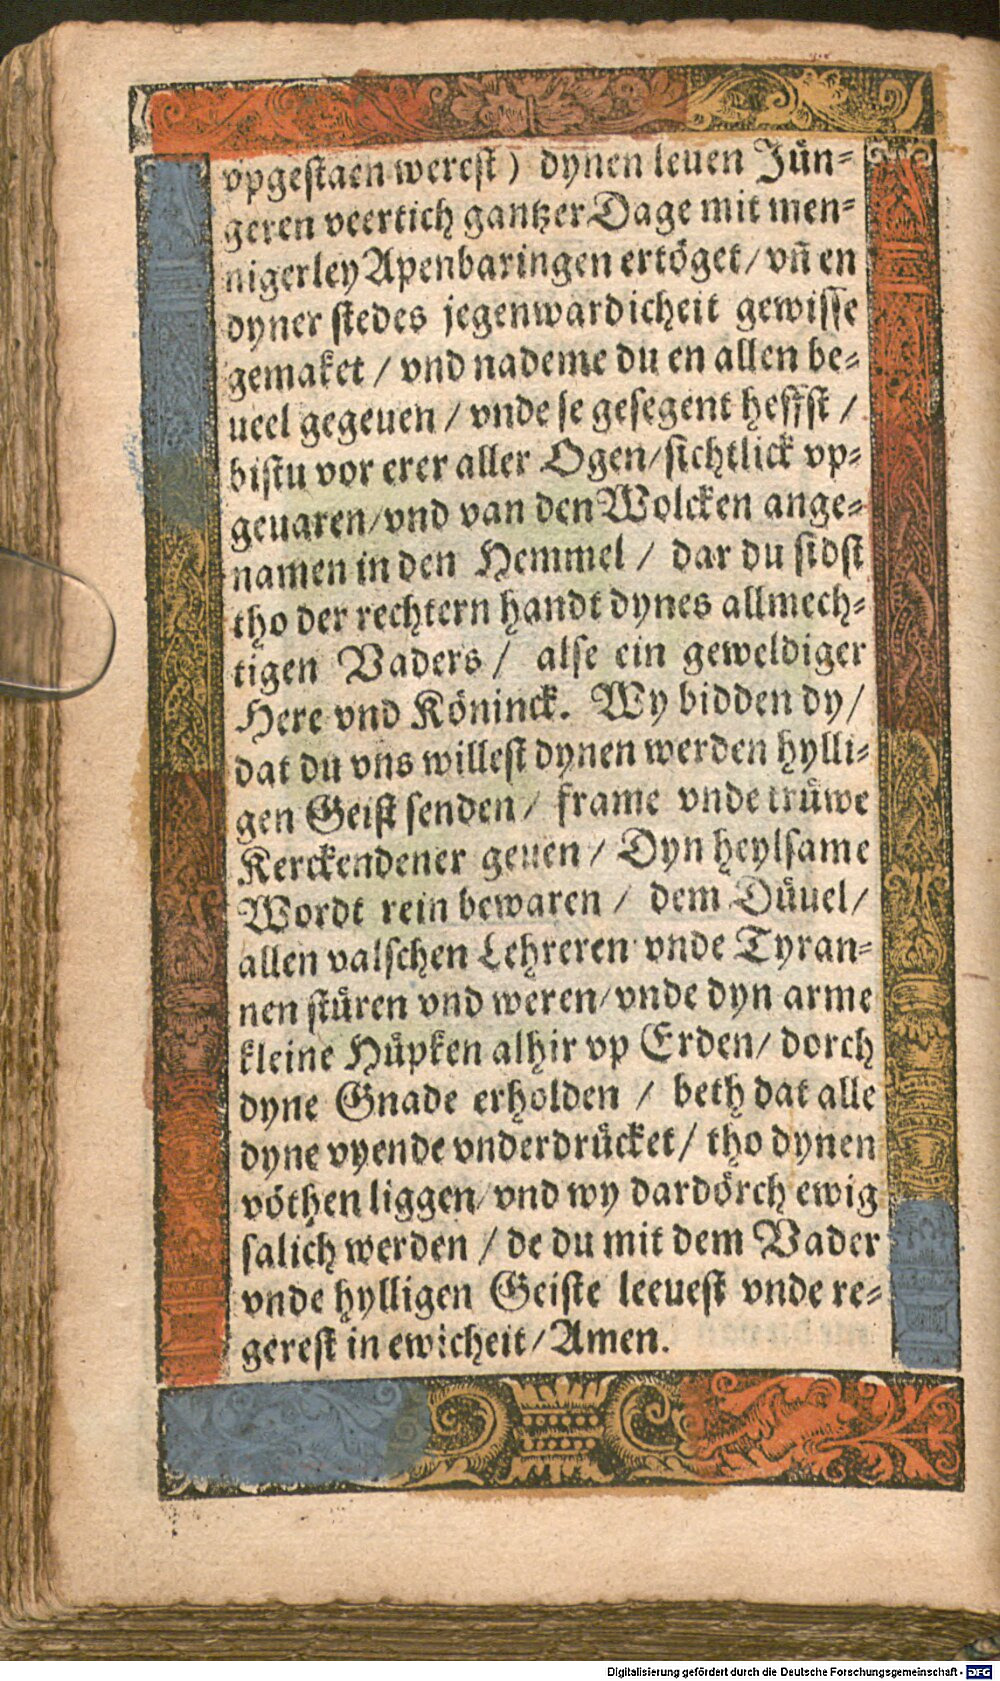 vpgestaen werest) dynen leuen Jün⸗
geren veertich gantzer Dage mit men⸗
nigerley Apenbaringen ertöget/ vñ en
dyner stedes jegenwardicheit gewisse
gemaket / vnd nademe du en allen be⸗
ueel gegeuen / vnde se gesegent heffst /
bistu vor erer aller Ogen/ sichtlick vp⸗
geuaren/ vnd van den Wolcken ange⸗
namen in den Hemmel / dar du sidst
tho der rechtern handt dynes allmech⸗
tigen Vaders / alse ein geweldiger
Here vnd Köninck. Wy bidden dy/
dat du vns willest dynen werden hylli⸗
gen Geist senden/ frame vnde trüwe
Kerckendener geuen / Dyn heylsame
Wordt rein bewaren / dem Düuel/
allen valschen Lehreren vnde Tyran⸗
nen stüren vnd weren/ vnde dyn arme
kleine Hüpken alhir vp Erden/ dorch
dyne Gnade erholden / beth dat alle
dyne vyende vnderdrücket/ tho dynen
vöthen liggen/ vnd wy dardörch ewig
salich werden / de du mit dem Vader
vnde hylligen Geiste leeuest vnde re⸗
gerest in ewicheit/ Amen.
Digitalisierung gefördert durch die Deutsche Forschungsgemeinschaft - DFG